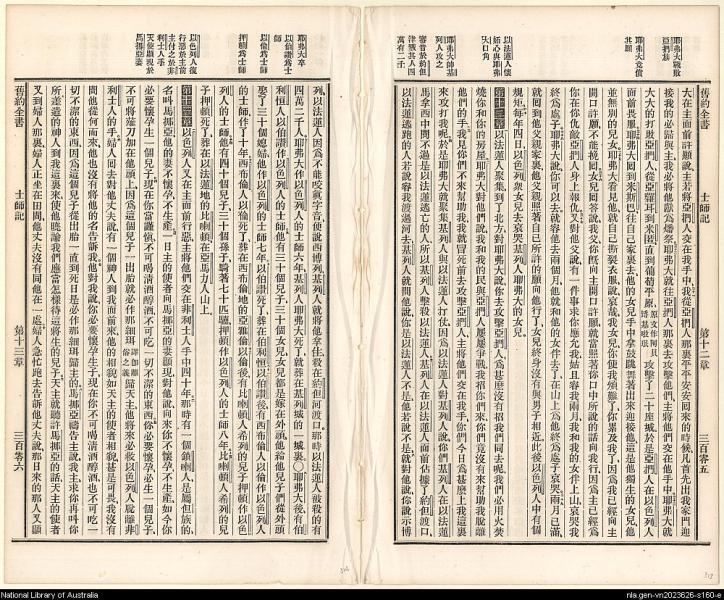 耶弗大戰敗
亞捫族
耶弗大竟償
其願
以法蓮人懷
妬心與耶弗
大口角
耶弗大帥基
列人攻之
審音於約但
津戮其人四
萬有二千
舊約全書
士師記
第十二章
三百零五
大在主面前許願說主若將亞捫人交在我手中我從亞捫人那裏平平安安回來的時候凡首先出我家門迎
接我的必歸與主我必將他獻爲燔祭耶弗大就往亞捫人那裏去攻擊他們主將他們交在他手中耶弗大就
大大的打敗亞捫人從亞羅珥到米匿直到葡萄平原攻擊了二十座城於是亞捫人在以色列人
面前畏服耶弗大回到米斯巴往自己家裏去他的女兒手中拿鼓跳舞著出來迎接他這是他獨生的女兒他
並無別的兒女耶弗大看見他就自己撕裂衣服說哀哉我女兒你使我煩難了你累及了我因爲我已經向主
開口許願不能挽回女兒回答說我父你旣向主開口許願就當照著你口中所說的話向我行因爲主已經爲
你在你仇敵亞捫人身上報仇又對他父說有一件事求你應允我姑且容我兩個月我和我的女伴上山哀哭我
終爲處子耶弗大說你可以去就容他去兩個月他就和他的女伴去了在山上爲他終爲處子哀哭兩月已滿
就回到他父親家裏他父親照著自己所許的願向他行了女兒終身沒有與男子相近此後以色列人中有個
規矩每年四日以色列衆女兒去哀哭基列人耶弗大的女兒
第十二章以法蓮人聚集到了北方對耶弗大說你去攻擊亞捫人爲甚麽沒有招我們同去呢我們必用火焚
燒你和你的房屋耶弗大對他們說我和我的民與亞捫人屢屢爭戰我招你們來你們竟沒有來幫助我脫離
他們的手我見你們不來幫助我我就冒死前去攻擊亞捫人主將他們交在我手你們今日爲甚麽上我這裏
來攻打我呢於是耶弗大就聚集基列人與以法蓮人打仗因爲以法蓮人對基列人說你們基列人在以法蓮
馬拿西中間不過是以法蓮逃亡的人所以基列人擊殺以法蓮人基列人在以法蓮人面前佔據了約但渡口
以法蓮逃跑的人若說容我渡過河去基列人就問他說你是以法蓮人不是他若說不是就對他說你說示博
耶弗大卒
以伯讚爲士
師
以倫爲士師
押頓爲士師
以色列人復
行惡於主前
主付之於非
利士人手
天使顯現於
馬挪亞妻
舊約全書
士師記
第十三章
三百零六
列以法蓮人因爲不能咬眞字音便說西博列基列人就將他拿住殺在約但河渡口那時以法蓮人被殺的有
四萬二千人耶弗大作以色列人的士師六年基列人耶弗大死了就葬在基列城的一城裏○耶弗大後有伯
利恆人以伯讚作以色列人的士師他有三十個兒子三十個女兒女兒都是嫁在外頭他給他兒子們從外頭
娶了三十個媳婦他作以色列的士師七年以伯讚死了葬在伯利恆以伯讚後有西布倫人以倫作以色列人
的士師作了十年西布倫人以倫死了葬在西布倫地的亞雅倫以倫後有比喇頓人希列的兒子押頓作以色
列人的士師他有四十個兒子三十個孫子騎著七十匹驢押頓作以色列人的士師八年比喇頓人希列的兒
子押頓死了葬在以法蓮地的比喇頓在亞馬力人山上
第十三章以色列人又在主面前行惡主將他們交在非利士人手中四十年那時有一個瑣喇人是屬但族的
名叫馬挪亞他的妻不懷孕不生產一日主的使者向馬挪亞的妻顯現對他說向來你不懷孕不生產如今你
必要懷孕生一個兒子現在你當謹愼不可喝清酒醇酒不可吃一切不潔的東西你必要懷孕必生一個兒子
不可將薙刀加在他頭上因爲這個兒子一出胎就必作那細珥歸天主他將來必救以色列人脫離非
利士人的手婦人回去對他丈夫說有一個神人到我面前來他的相貌如天主的使者相貌甚是可畏我沒有
問他從何而來他也沒有將他的名告訴我他對我說你必要懷孕生子現在你不可喝清酒醇酒也不可吃一
切不潔的東西因爲這個兒子從出胎一直到死日是必作那細珥歸主的馬挪亞禱告主說我主求你再叫你
所差遣的神人到我這裏來使他曉諭我們應當怎樣待這將生的兒子天主就聽許馬挪亞的話天主的使者
又到婦人那裏婦人正坐在田間他丈夫沒有同他在一處婦人急忙跑去告訴他丈夫說那日來的那人又顯
National Library of Australia
nla.gen-vn2023626-s160-e